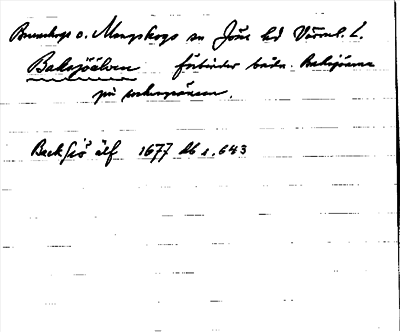 Brunskogs o. Mangskogs sn Jösse hd Värml. l.
Baksjöälven förbinder båda Baksjöarna
på sockengränsen.
Backsiö älf 1677 Db s. 643